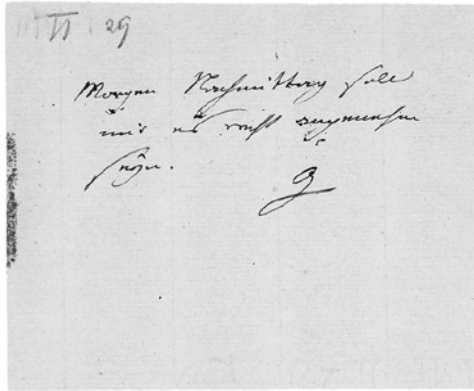 II 29
Morgen Nachmittag soll
mir es recht angenehm
seyn.
G